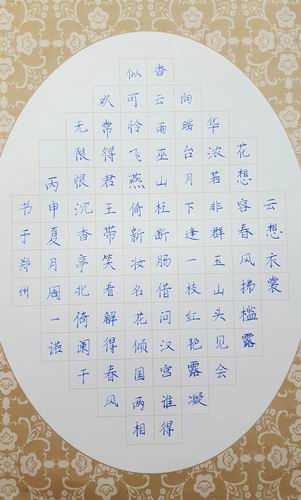 云想衣裳
花想容春风拂槛露
华浓若非群玉山头见会
向瑶台月下逢一枝红艳露凝
香云雨巫山枉断肠借问汉宫谁得
似可怜飞燕倚新妆名花倾国两相
欢常得君王带笑看解得春风
无限恨沉香亭北倚阑干
丙申夏月周一诺
书于郑州